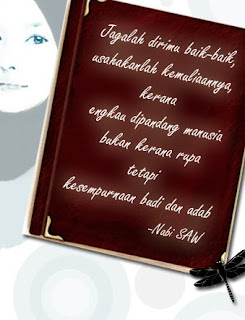 Jagalah dirimu baik-baik,
usahakanlah kemuliaannya,
kerana
engkau dipandang manusia
bukan kerana rupa
tetapi
kesempurnaan budi dan adab
-Nabi SAW